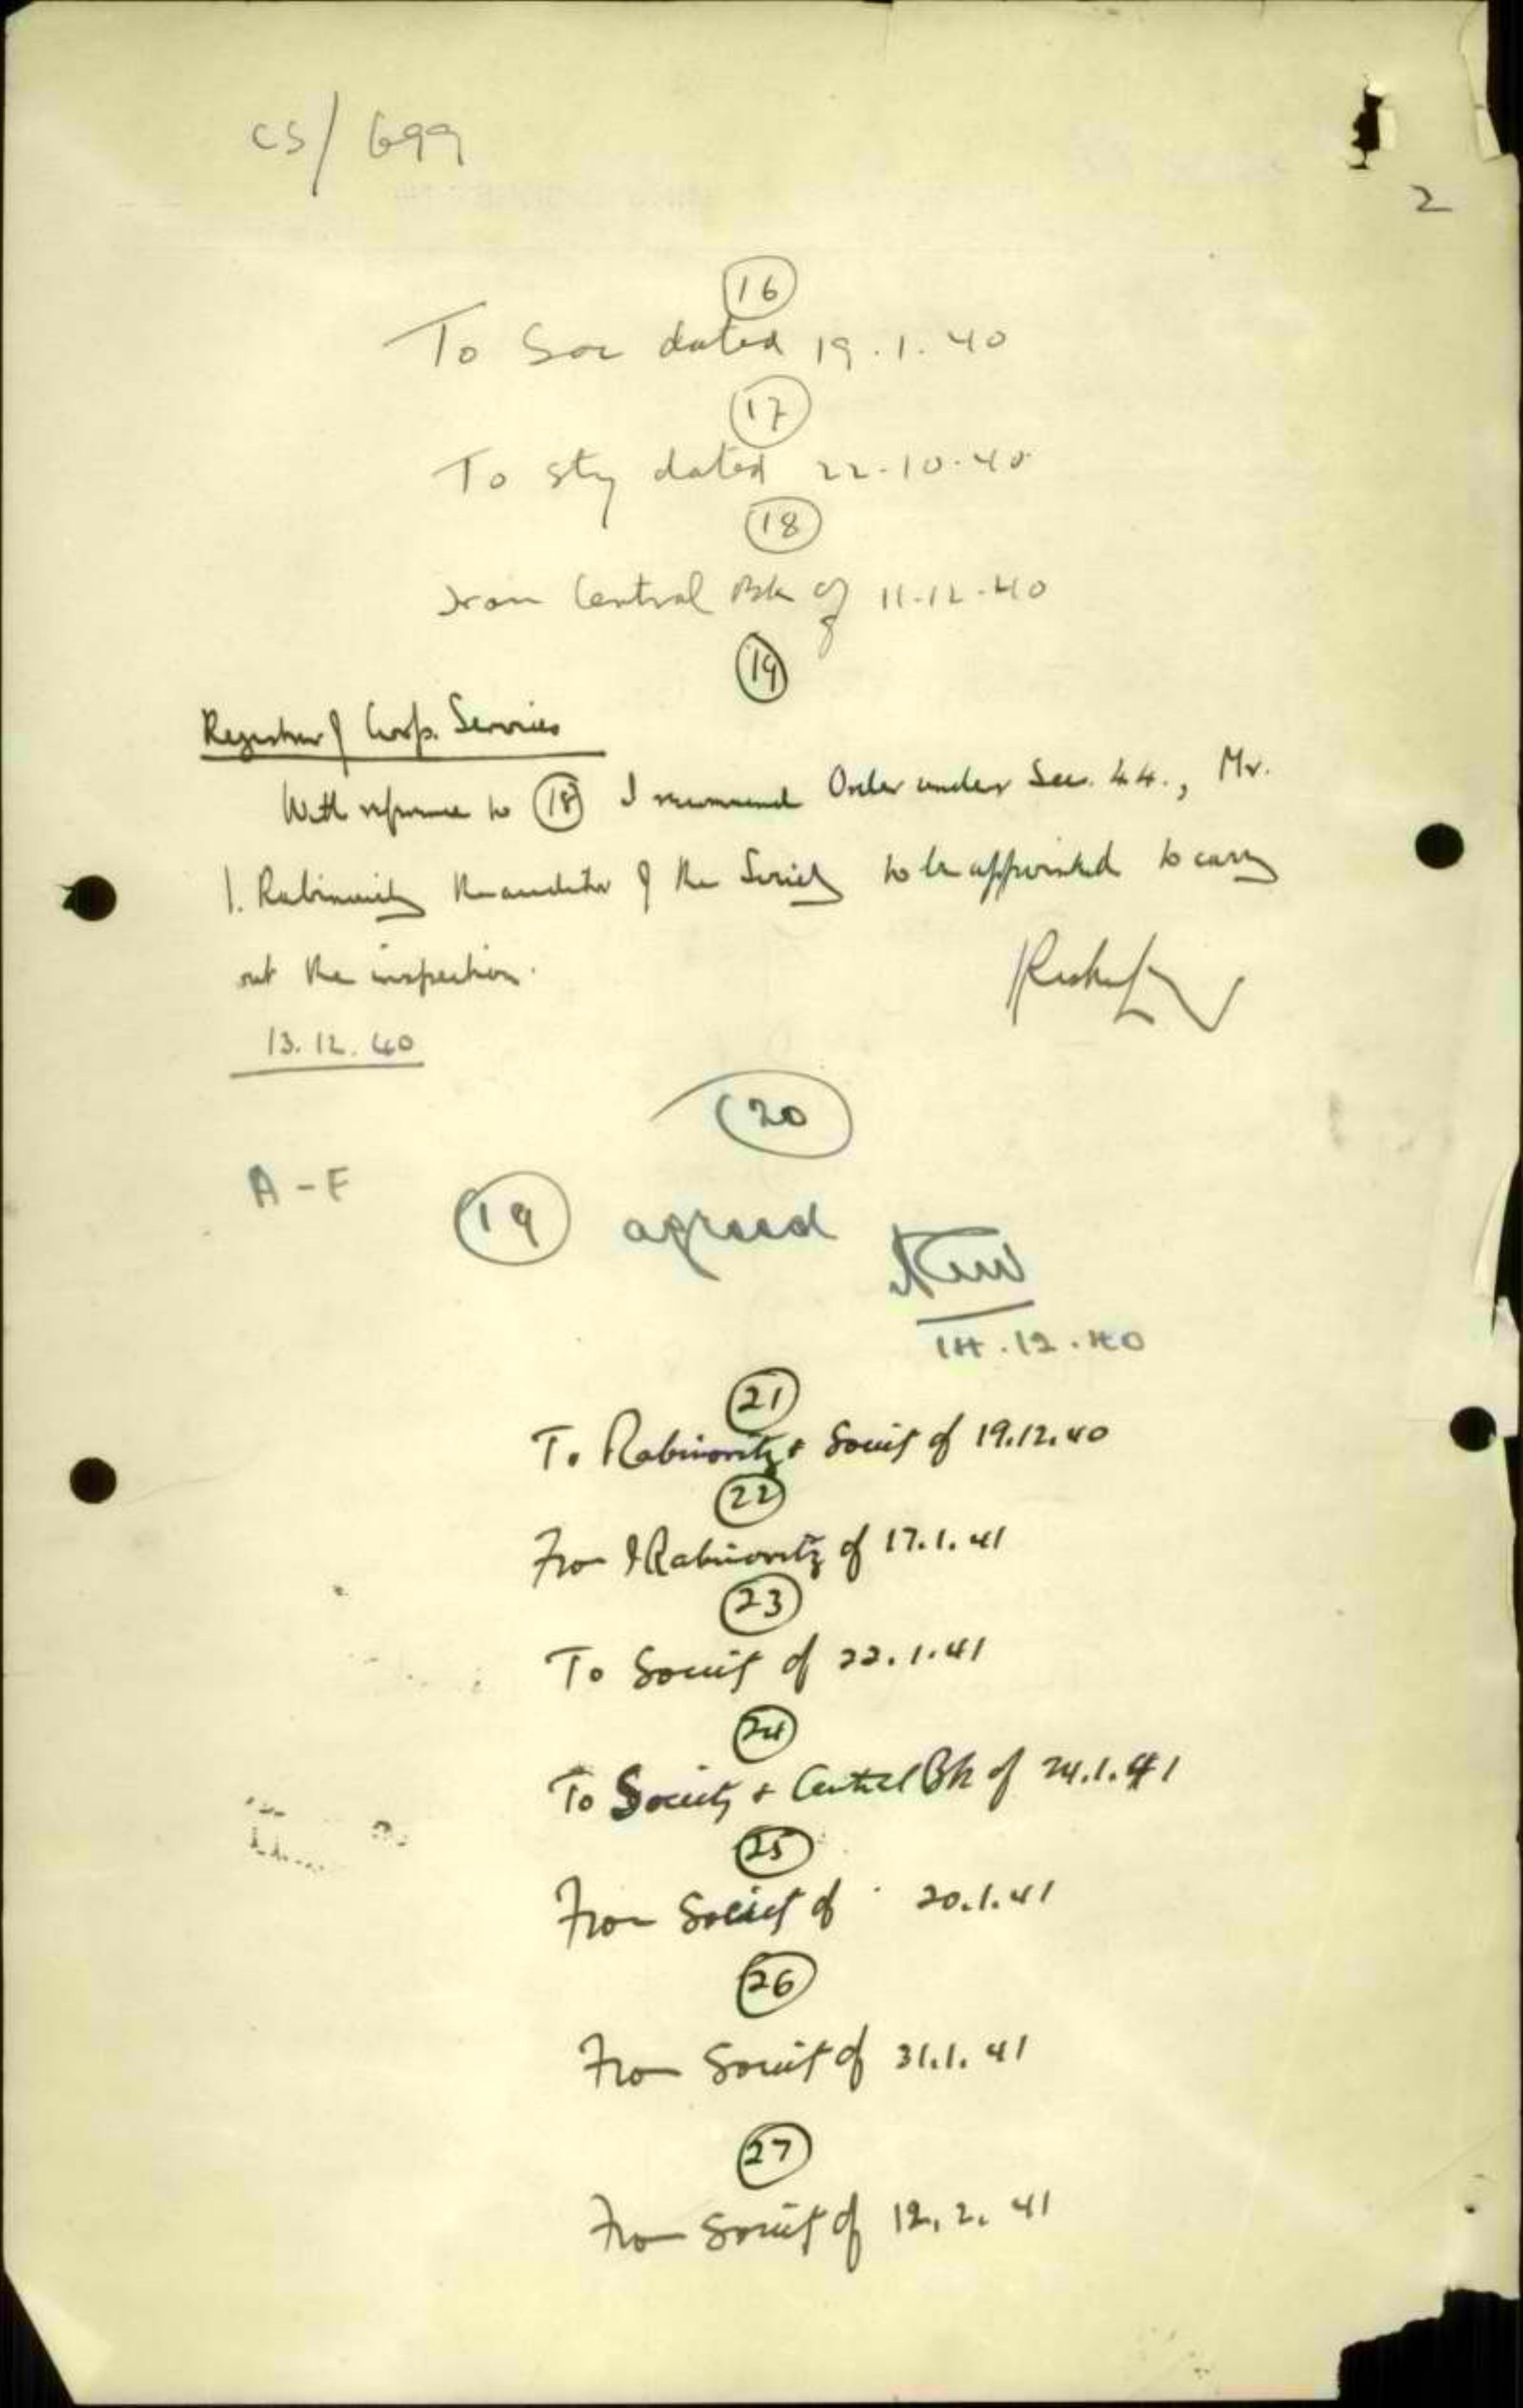 CS/699
2
16
To Soc dated 19.1.40
17
To Sty dated 22.10.40
18
From Central Bk of 11.12.40
19
Registrar of Coop. Services
With reference to 18 I recommend Order under Sec. 44., Mr.
I. Rabinowitz the auditor of the Society to be appointed to carry
out the inspection.
13.12.40
20
A-F
19 agreed
14.12.40
21
To Rabinowitz & Society of 19.12.40
22
From I Rabinowitz of 17.1.41
23
To Society of 22.1.41
24
To Society & Central Bk of 24.1.41
25
From Society of 20.1.41
26
From Society of 31.1.41
27
From Society of 12.2.41